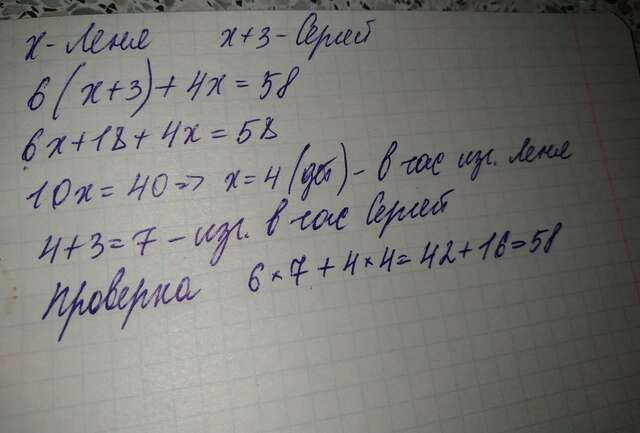 х - Леня х+3 - Сергей
6(х+3)+4х=58
6х+18+4х=58
10х=40=> х=4(дет) - в час изг. Леня
4+3=7 - изг. в час Сергей
Проверка 6×7+4×4=42+16=58